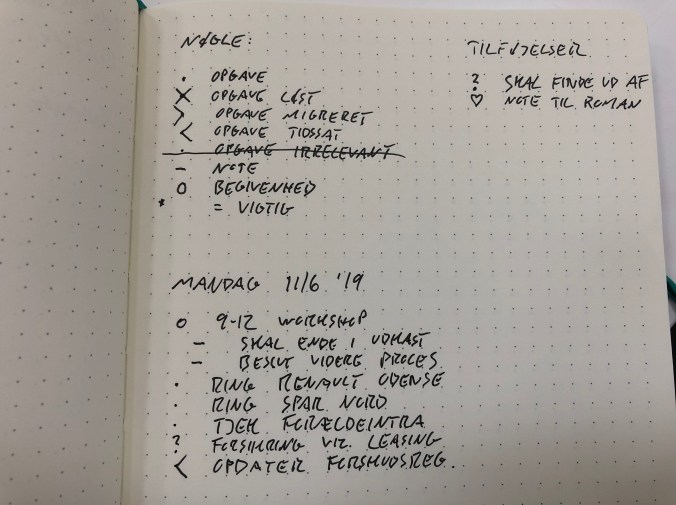 NØGLE:
• OPGAVE
X OPGAVE LØST
> OPGAVE MIGRERET
< OPGAVE TIDSSAT
• OPGAVE IRRELEVANT
– NOTE
O BEGIVENHED
* = VIGTIG
TILFØJELSER
? SKAL FINDE UD AF
♡ NOTE TIL ROMAN
MANDAG 11/6 '19
O 9-12 WORKSHOP
– SKAL ENDE I UDKAST
– BESLUT VIDERE PROCES
• RING RENAULT ODENSE
• RING SPAR NORD
• TJEK FORÆLDEINTRA
? FORSIKRING VIR. LEASING
< OPDATER FORSKUDSREG.